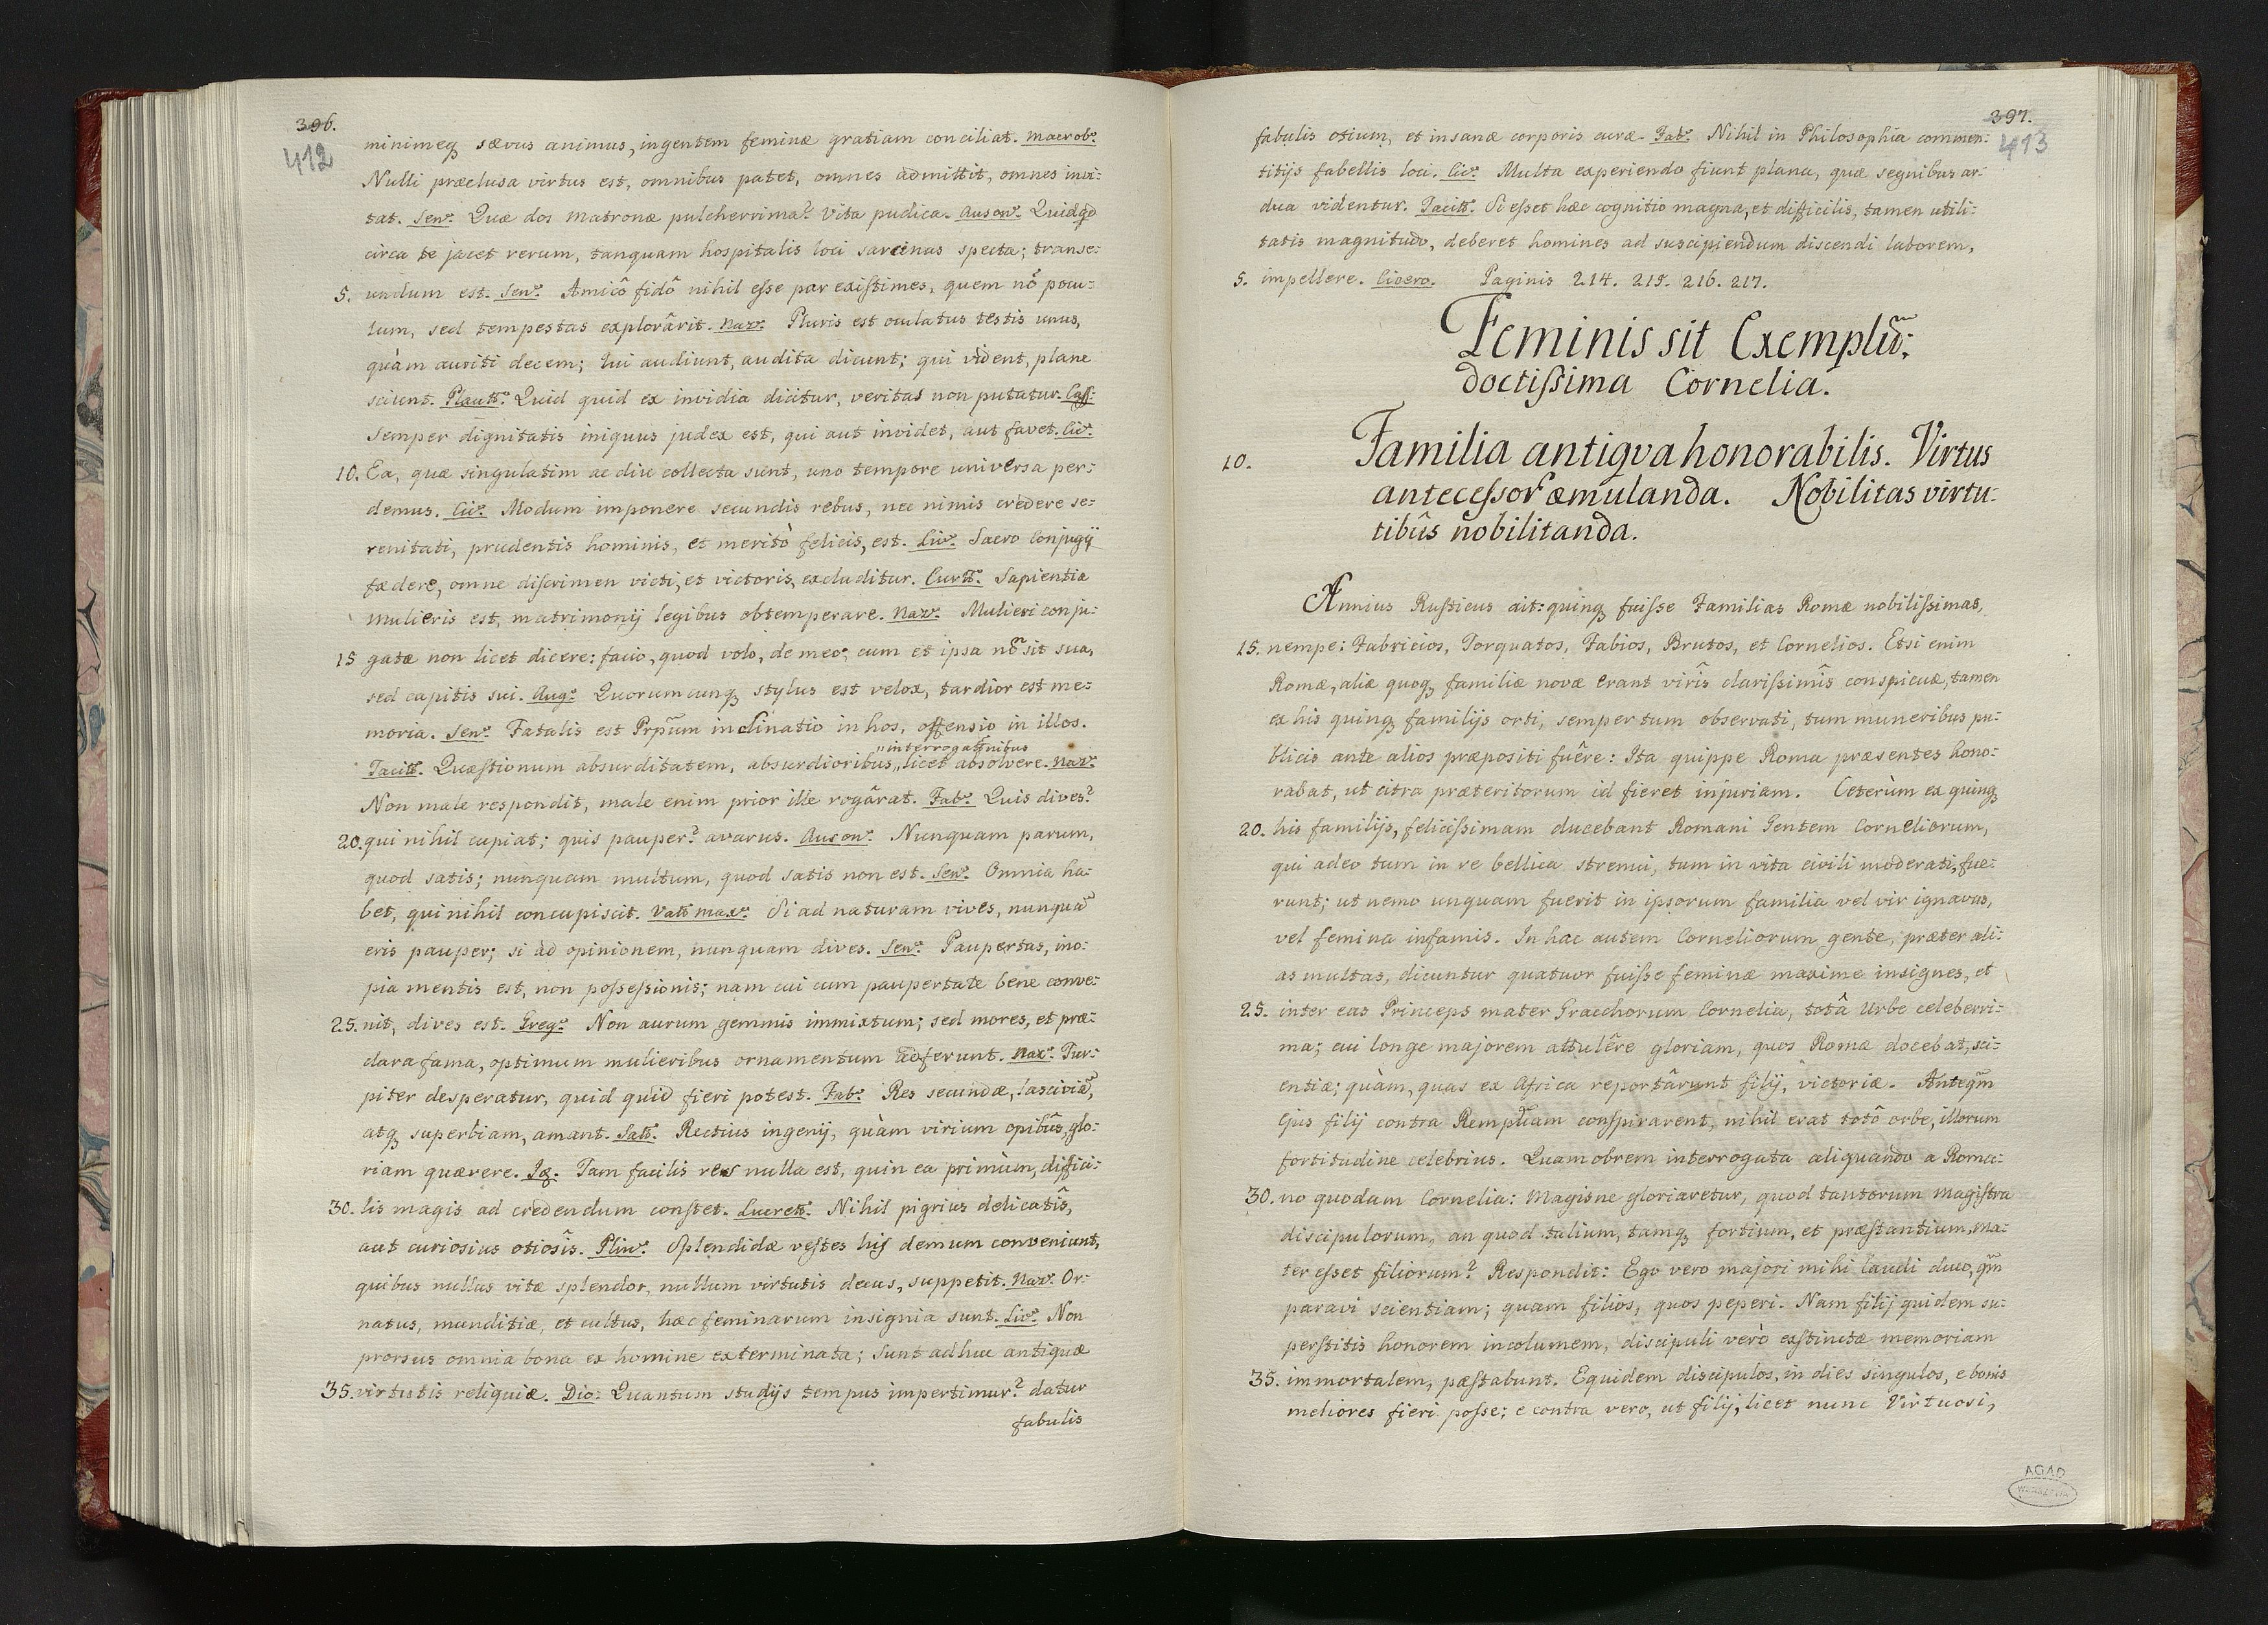 396.
412
minimeq; sævus animus, ingentem feminæ gratiam conciliat. Macrob:
Nulli præclusa virtus est, omnibus patet, omnes admittit, omnes invi:
tat. Sen: Quæ dos matronæ pulcherrima? vita pudica. Auson: Quidqd
circa te jacet rerum, tanquam hospitalis loci sarcinas specta; transe:
5. undum est. Sen: Amicô fidô nihil esse par existimes, quem nõ pocu:
lum, sed tempestas explorârit. Naz: Pluris est oculatus testis unus,
quàm auriti decem; Qui audiunt, audita dicunt; qui vident, plane
sciunt. Plautt: Quid quid ex invidia dicitur, veritas non putatur. Cass:
Semper dignitatis iniquus judex est, qui aut invidet, aut favet. Liv:
10. Ea, quæ singulatim ac diu collecta sunt, uno tempore universa per:
demus. Liv: Modum imponere secundis rebus, nec nimis credere se:
renitati, prudentis hominis, et meritò felicis, est. Liv: Sacro Conjugij
fædere, omne discrimen victi, et victoris, excluditur. Curtt: Sapientiæ
mulieris est, matrimonij legibus obtemperare. Naz: Mulieri conju:
15 gatæ non licet dicere: facio, quod volo, de meo; cum et ipsa nõ sit sua,
sed capitis sui. Aug: Quorumcunq; stylus est velox, tardior est me:
moria. Sen: Fatalis est Prpũm inclinatio in hos, offensio in illos.
"interrogatõnibus
Tacitt: Quæstionum absurditatem, absurdioribus,, licet absolvere. Naz:
Non male respondit, male enim prior ille rogârat. Fab: Quis dives?
20. qui nihil cupiat; quis pauper? avarus. Auson: Nunquam parum,
quod satis; nunquam multum, quod satis non est. Sen: Omnia ha:
bet, qui nihil concupiscit. Vatt max: Si ad naturam vives, nunquã
eris pauper; si ad opinionem, nunquam dives. Sen: Paupertas, ino:
pia mentis est, non possessionis; nam cui cum paupertate bene conve:
25. nit, dives est. Greg: Non aurum gemmis immixtum; sed mores, et præ:
clara fama, optimum mulieribus ornamentum adferunt. Naz: Tur:
piter desperatur, quid quid fieri potest. Fab: Res secundæ, lasciviã,
atq; superbiam, amant. Satt: Rectius ingenij, quàm virium opibûs, glo:
riam quærere. Iq: Tam facilis res nulla est, quin ea primùm, diffici:
30. lis magis ad credendum constet. Lucrett: Nihil pigrius delicatîs,
aut curiosius otiosîs. Plin: Splendidæ vestes his demum conveniunt,
quibus nullus vitæ splendor, nullum virtutis decus, suppetit. Naz: Or:
natus, munditiæ, et cultus, hæc feminarum insignia sunt. Liv: Non
prorsus omnia bona ex homine exterminata; sunt adhuc antiquæ
35. virtutis reliquiæ. Dio: Quantum studijs tempus impertimur? datur
fabulis
397.
413
fabulis otium, et insanæ corporis curæ. Fab: Nihil in Philosophia commen:
titijs fabellis loci. Civ: Multa experiendo fiunt plana, quæ segnibus ar:
dua videntur. Tacitt: Si esset hæc cognitio magna, et difficilis, tamen utili:
tatis magnitudo, deberet homines ad suscipiendum discendi laborem,
5. impellere. Cicero. Paginis 214. 215. 216. 217.
Feminis sit Exemplũ;
doctissima Cornelia.
10. Familia antiqva honorabilis. Virtus
antecessor æmulanda. Nobilitas virtu:
tibûs nobilitanda.
Annius Rusticus ait: quinq; fuisse Familias Romæ nobilissimas,
15. nempe: Fabricios, Torquatos, Fabios, Brutos, et Cornelios. Etsi enim
Romæ, aliæ quoq; familiæ novæ erant virîs clarissimîs conspicuæ, tamen
ex his quinq; familijs orti, semper tum observati, tum muneribus pu:
blicis ante alios præpositi fuêre: Ita quippe Roma præsentes hono:
rabat, ut citra præteritorum id fieret injuriam. Ceterùm ex quinq;
20. his familijs, felicissimam ducebant Romani Gentem Corneliorum,
qui adeo tum in re bellica strenui, tum in vita civili moderati, fue:
runt; ut nemo unquam fuerit in ipsorum familia vel vir ignavus,
vel femina infamis. In hac autem Corneliorum gente, præter ali:
as multas, dicuntur quatuor fuisse feminæ maxime insignes, et
25. inter eas Princeps mater Gracchorum Cornelia, totâ Urbe celeberri:
ma; cui longe majorem attulêre gloriam, quos Romæ docebat, sci:
entiæ; quàm, quas ex Africa reportârunt filij, victoriæ. Anteqm̃
Ejus filij contra Rempb̃am conspirarent, nihil erat totô orbe, illorum
fortitudine celebrius. Quamobrem interrogata aliquando a Roma:
30. no quodam Cornelia: Magisne gloriaretur, quod tantorum magistra
discipulorum, an quod talium, tamq; fortium, et præstantium, ma:
ter esset filiorum? Respondit: Ego vero majori mihi laudi duco, qm̃
paravi scientiam; quam filios, quos peperi. Nam filij quidem su:
perstitis honorem incolumem, discipuli verò exstinctæ memoriam
35. immortalem, pæstabunt. Equidem discipulos, in dies singulos, e bonis
meliores fieri posse; e contra vero, ut filij, licet nunc Virtuosi,
AGAD
WARSZAWA